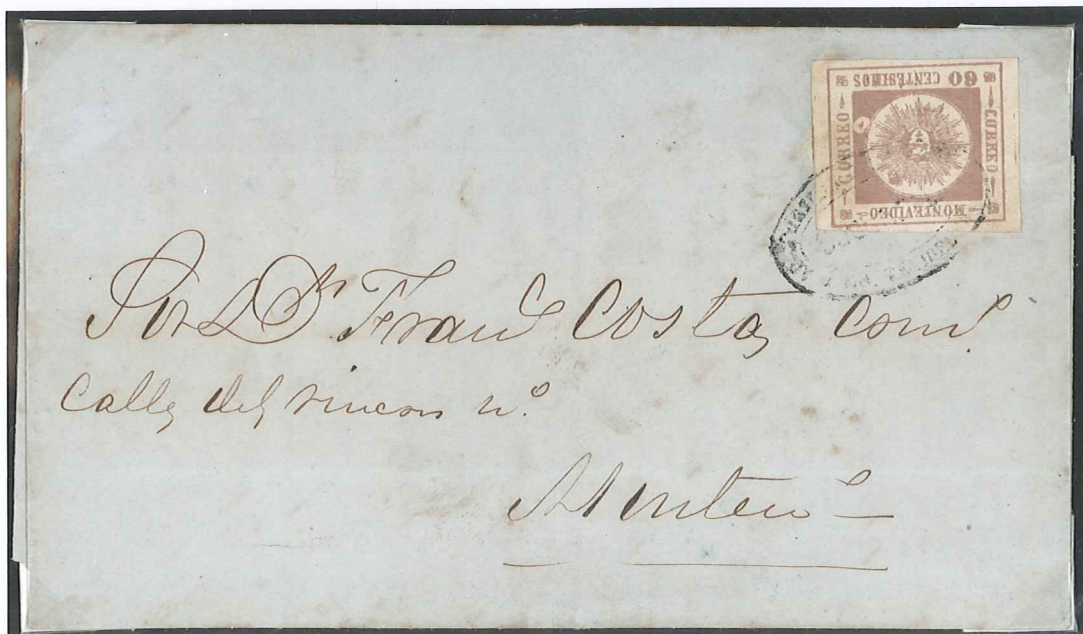 60 CENTÉSIMOS
CORREO
CORREO
MONTEVIDEO
Sor Dn Franco Costa, como
Calle del rincon no.
Montevo